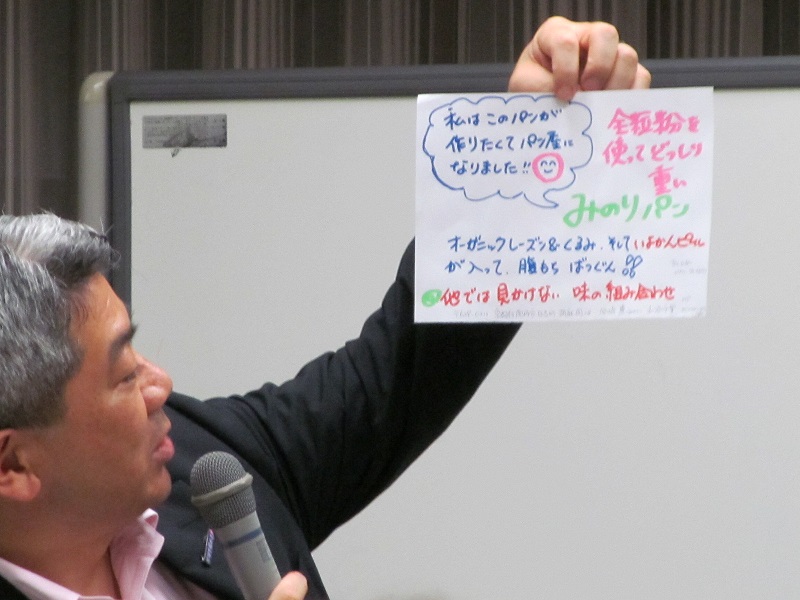 私はこのパンが
作りたくてパン屋に
なりました!!
全粒粉を
使ってどっしり
重い
みのりパン
オーガニックレーズン&くるみ、そしていよかんピール
が入って、腹もち ばつぐん
他では見かけない 味の組み合わせ